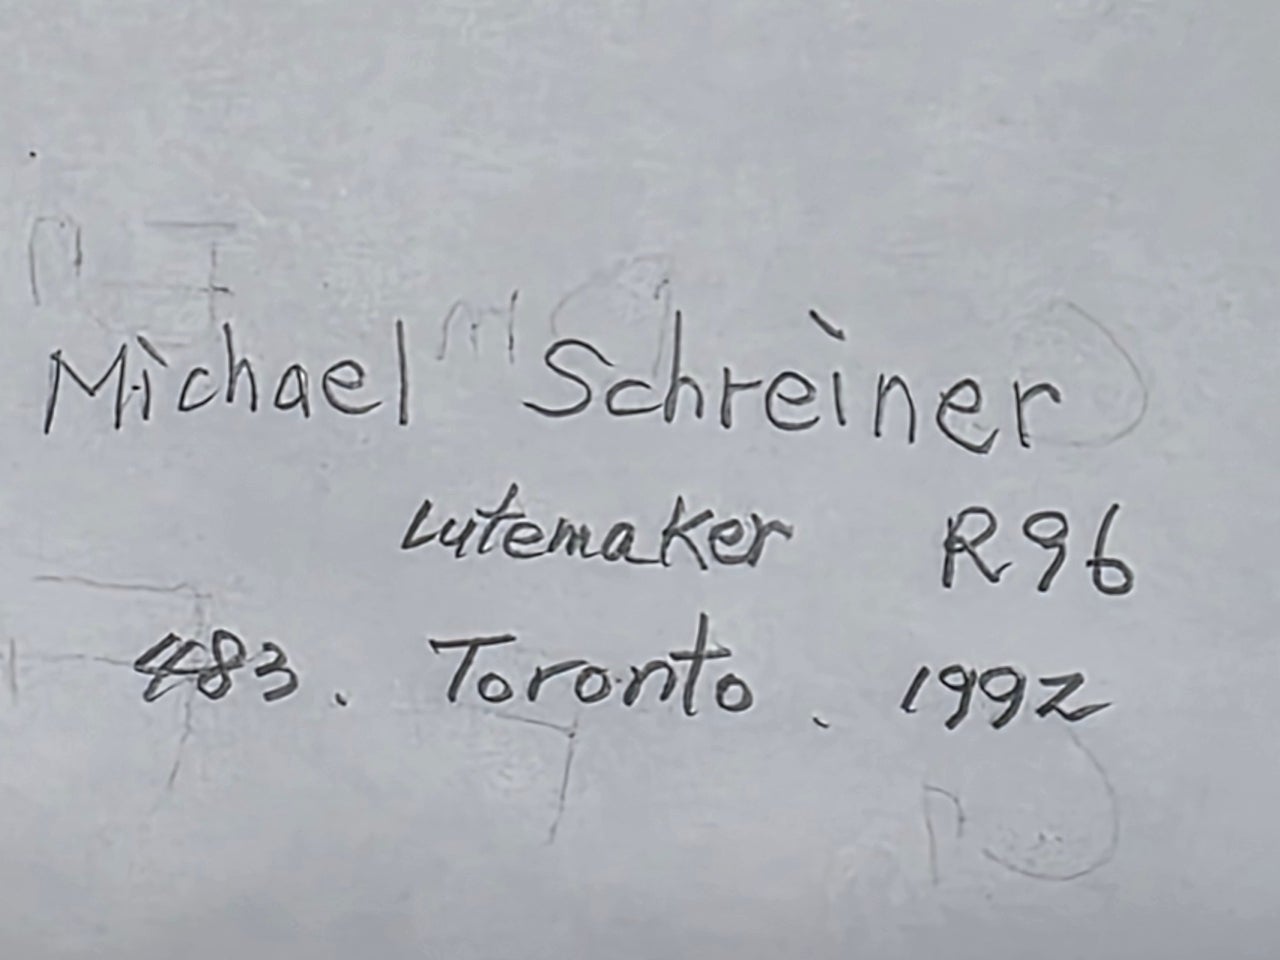 Michael Schreiner
Lutemaker R96
483. Toronto. 1992